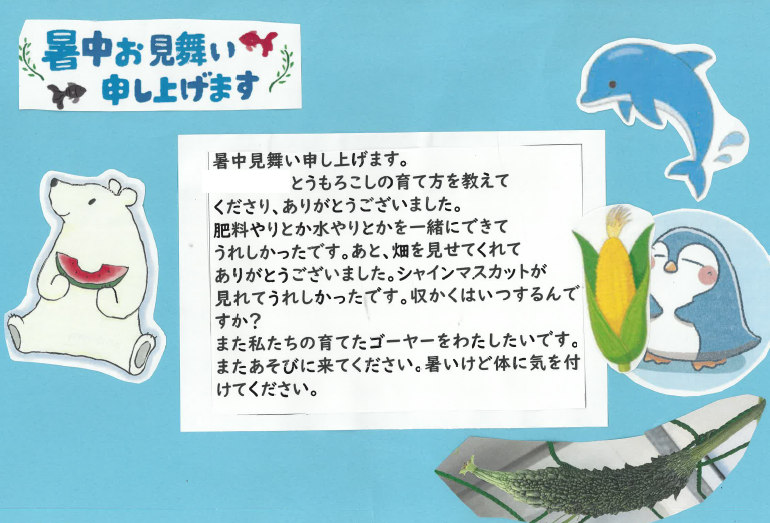 暑中お見舞い
申し上げます
暑中見舞い申し上げます。
とうもろこしの育て方を教えて
くださり、ありがとうございました。
肥料やりとか水やりとかを一緒にできて
うれしかったです。あと、畑を見せてくれて
ありがとうございました。シャインマスカットが
見れてうれしかったです。収かくはいつするんで
すか？
また私たちの育てたゴーヤーをわたしたいです。
またあそびに来てください。暑いけど体に気を付
けてください。